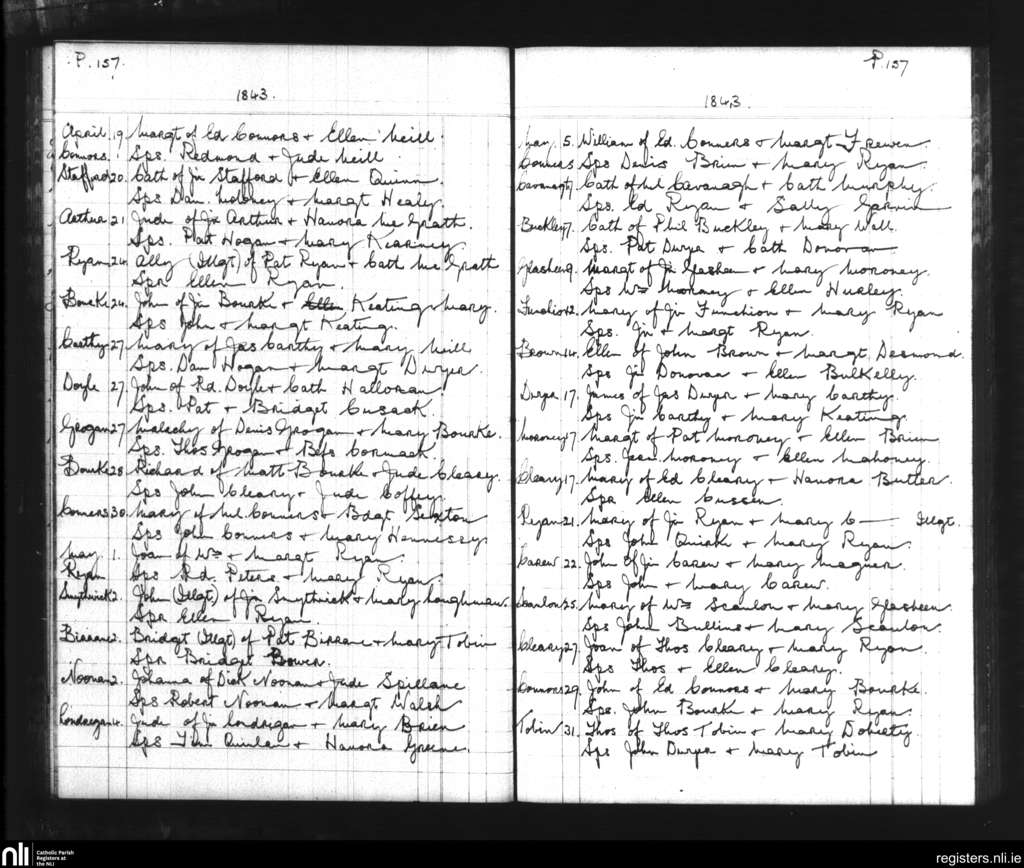 P. 157.
1843.
April 19 Margt of Ed Connors + Ellen Neill
Connors Sps. Redmond + Jude Neill
Stafford 20. Cath of Jn Stafford + Ellen Quinn.
Sps Dan. Moloney + Margt Healy
Arthur 21 Jude of Jn Arthur + Hanora McGrath.
Sps. Pat Hogan + Mary Kearney.
Ryan 24. Ally (Illgt) of Pat Ryan + Cath McGrath
Spr Ellen Ryan.
Bourke 24. John of Jn Bourke + Ellen Keating Mary.
Sps John + Margt Keating.
Carthy 27. Mary of Jas Carthy + Mary Neill
Sps. Dan Hogan + Margt Dwyer.
Doyle 27 John of Rd. Doyle + Cath Halloran
Sps. Pat + Bridget Cusack.
Grogan 27 Malachy of Denis Grogan + Mary Bourke.
Sps. Thos Grogan + Bess Cormack.
Bourke 28 Richard of Matt Bourke + Jude Cleary.
Sps John Cleary + Jude Coffey.
Comers 30. Mary of Ml. Conners + Bdgt Sexton
Sps John Conners + Mary Hennessy
May 1. Joan of Wm + Margt Ryan.
Ryan Sps Rd. Peters + Mary Ryan.
Smythwick 2. John (Illgt) of Jn Smythwick + Mary
Spr Ellen Ryan.
Birrane 2. Bridget (Illgt) of Pat Birrane + Mary Tobin
Spr Bridget Bowen.
Noonan 2. Johanna of Dick Noonan + Jude Spillane
Sps Robert Noonan + Margt Walsh
Londregan 4. Jude of Jn Londrigan + Mary Brien
Sps Tim Quinlan + Hanora Greene.
P. 157
1843.
May 5. William of Ed. Conners + Margt Frewen.
Conners Sps Denis Brien + Mary Ryan.
Cavanagh 7 Cath of Ml Cavanagh + Cath Murphy.
Sps. Ed Ryan + Sally
Buckley 7. Cath of Phil Buckley + Mary Wall.
Sps. Pat Dwyer + Cath Donovan
Glasheen 9. Margt of Jn Glasheen + Mary Moroney.
Sps Wm Moroney + Ellen Hurley.
12. Mary of Jn Funchion + Mary Ryan
Sps. Jn + Margt Ryan.
Brown 14. Ellen of John Brown + Margt Desmond.
Sps Jn Donovan + Ellen Bulkelly.
Dwyer 17. James of Jas Dwyer + Mary Carthy.
Sps Jn Carthy + Mary Keating.
Moroney 17 Margt of Pat Moroney + Ellen Brien
Sps. Moroney + Ellen Mahoney.
Cleary 17. Mary of Ed Cleary + Hanora Butler.
Spr Ellen Cussen.
Ryan 21. Mary of Jn Ryan + Mary C— Illgt.
Sps John Quirke + Mary Ryan.
Carew 22. John of Jn Carew + Mary Maguer.
Sps John + Mary Carew.
Scanlon 25. Mary of Wm Scanlon + Mary Glasheen.
Sps John Bullins + Mary Scanlon.
Cleary 27. Joan of Thos Cleary + Mary Ryan.
Sps Thos + Ellen Cleary.
Connors 29. John of Ed Connors + Mary Bourke.
Sps. John Bourke + Mary Ryan.
Tobin 31. Thos of Thos Tobin + Mary Doherty
Sps John Dwyer + Mary Tobin
nli Catholic Parish
Registers at
the NLI
registers.nli.ie